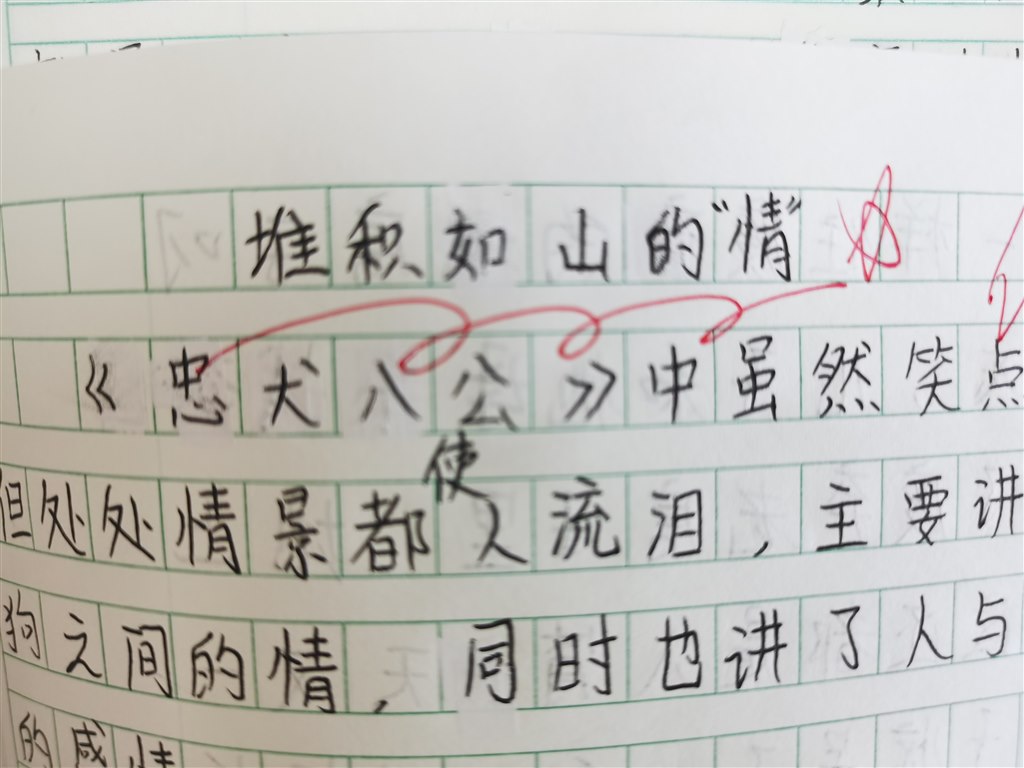 堆积如山的“情”
《忠犬八公》中虽然笑点
但处处情景都使人流泪，主要讲
狗之间的情，同时也讲了人与
的感情